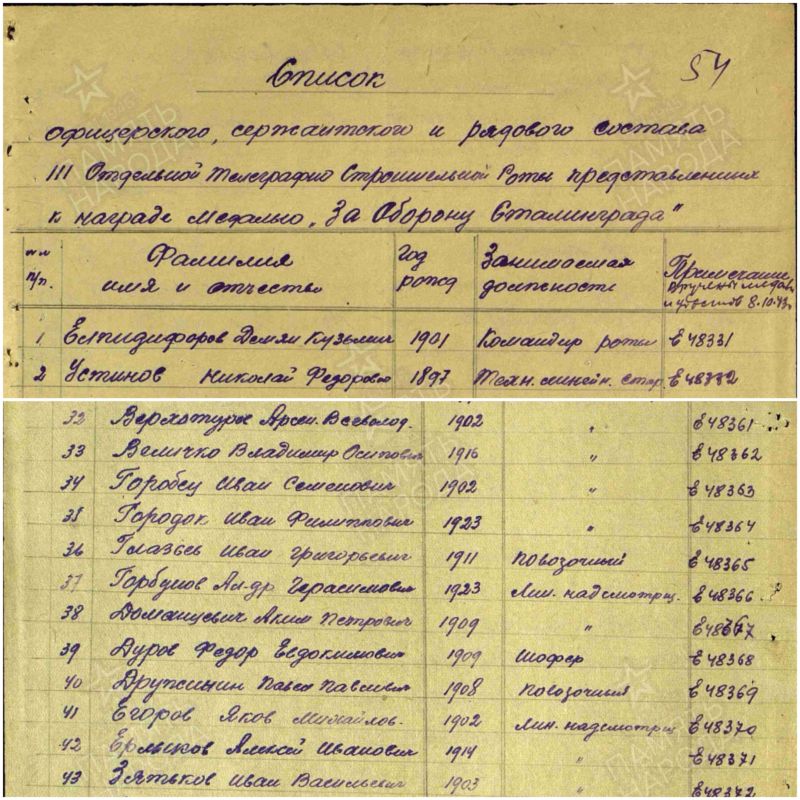 54
Список
офицерского, сержантского и рядового состава
III Отдельной Телеграфно Строительной Роты представленных
к награде медалью „За Оборону Сталинграда"
№№ п/п. Фамилия имя и отчество Год рожд Занимаемая должность Примечание, вручены медали и удостов 8.10.43г
1 Елпидифоров Демьян Кузьмич 1901 Командир роты Е48331
2 Устинов Николай Федоров 1897 Техн. линейн. стар. Е48332
32 Верхотуров Арсен. Всеволод. 1902 " Е48361
33 Величко Владимир Осипович 1916 " Е48362
34 Горобец Иван Семенович 1902 " Е48363
35 Городок Иван Филиппович 1923 " Е48364
36 Глазьев Иван Григорьевич 1911 повозочный Е48365
37 Горбунов Ал-др Герасимович 1923 Лин. надсмотрщ. Е48366
38 Доманцевич Аким Петрович 1909 " Е48367
39 Дуров Федор Евдокимович 1909 шофер Е48368
40 Дружинин Павел Павлович 1908 повозочный Е48369
41 Егоров Яков Михайлов. 1902 Лин. надсмотрщ Е48370
42 Ерлыков Алексей Иванович 1914 " Е48371
43 Зятьков Иван Васильевич 1903 " Е48372
ПАМЯТЬ НАРОДА